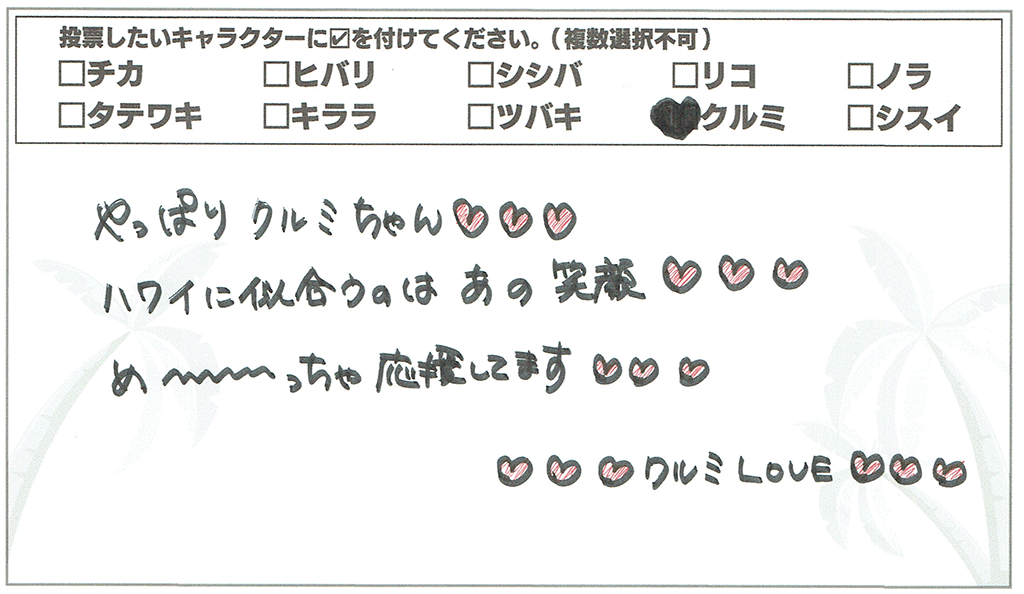 投票したいキャラクターに☑を付けてください。(複数選択不可)
□チカ □ヒバリ □シシバ □リコ □ノラ
□タテワキ □キララ □ツバキ ♥クルミ □シスイ
やっぱり クルミちゃん♥♥♥
ハワイに似合うのは あの 笑顔 ♥♥♥
め〜〜〜っちゃ 応援してます ♥♥♥
♥♥♥クルミ LOVE ♥♥♥